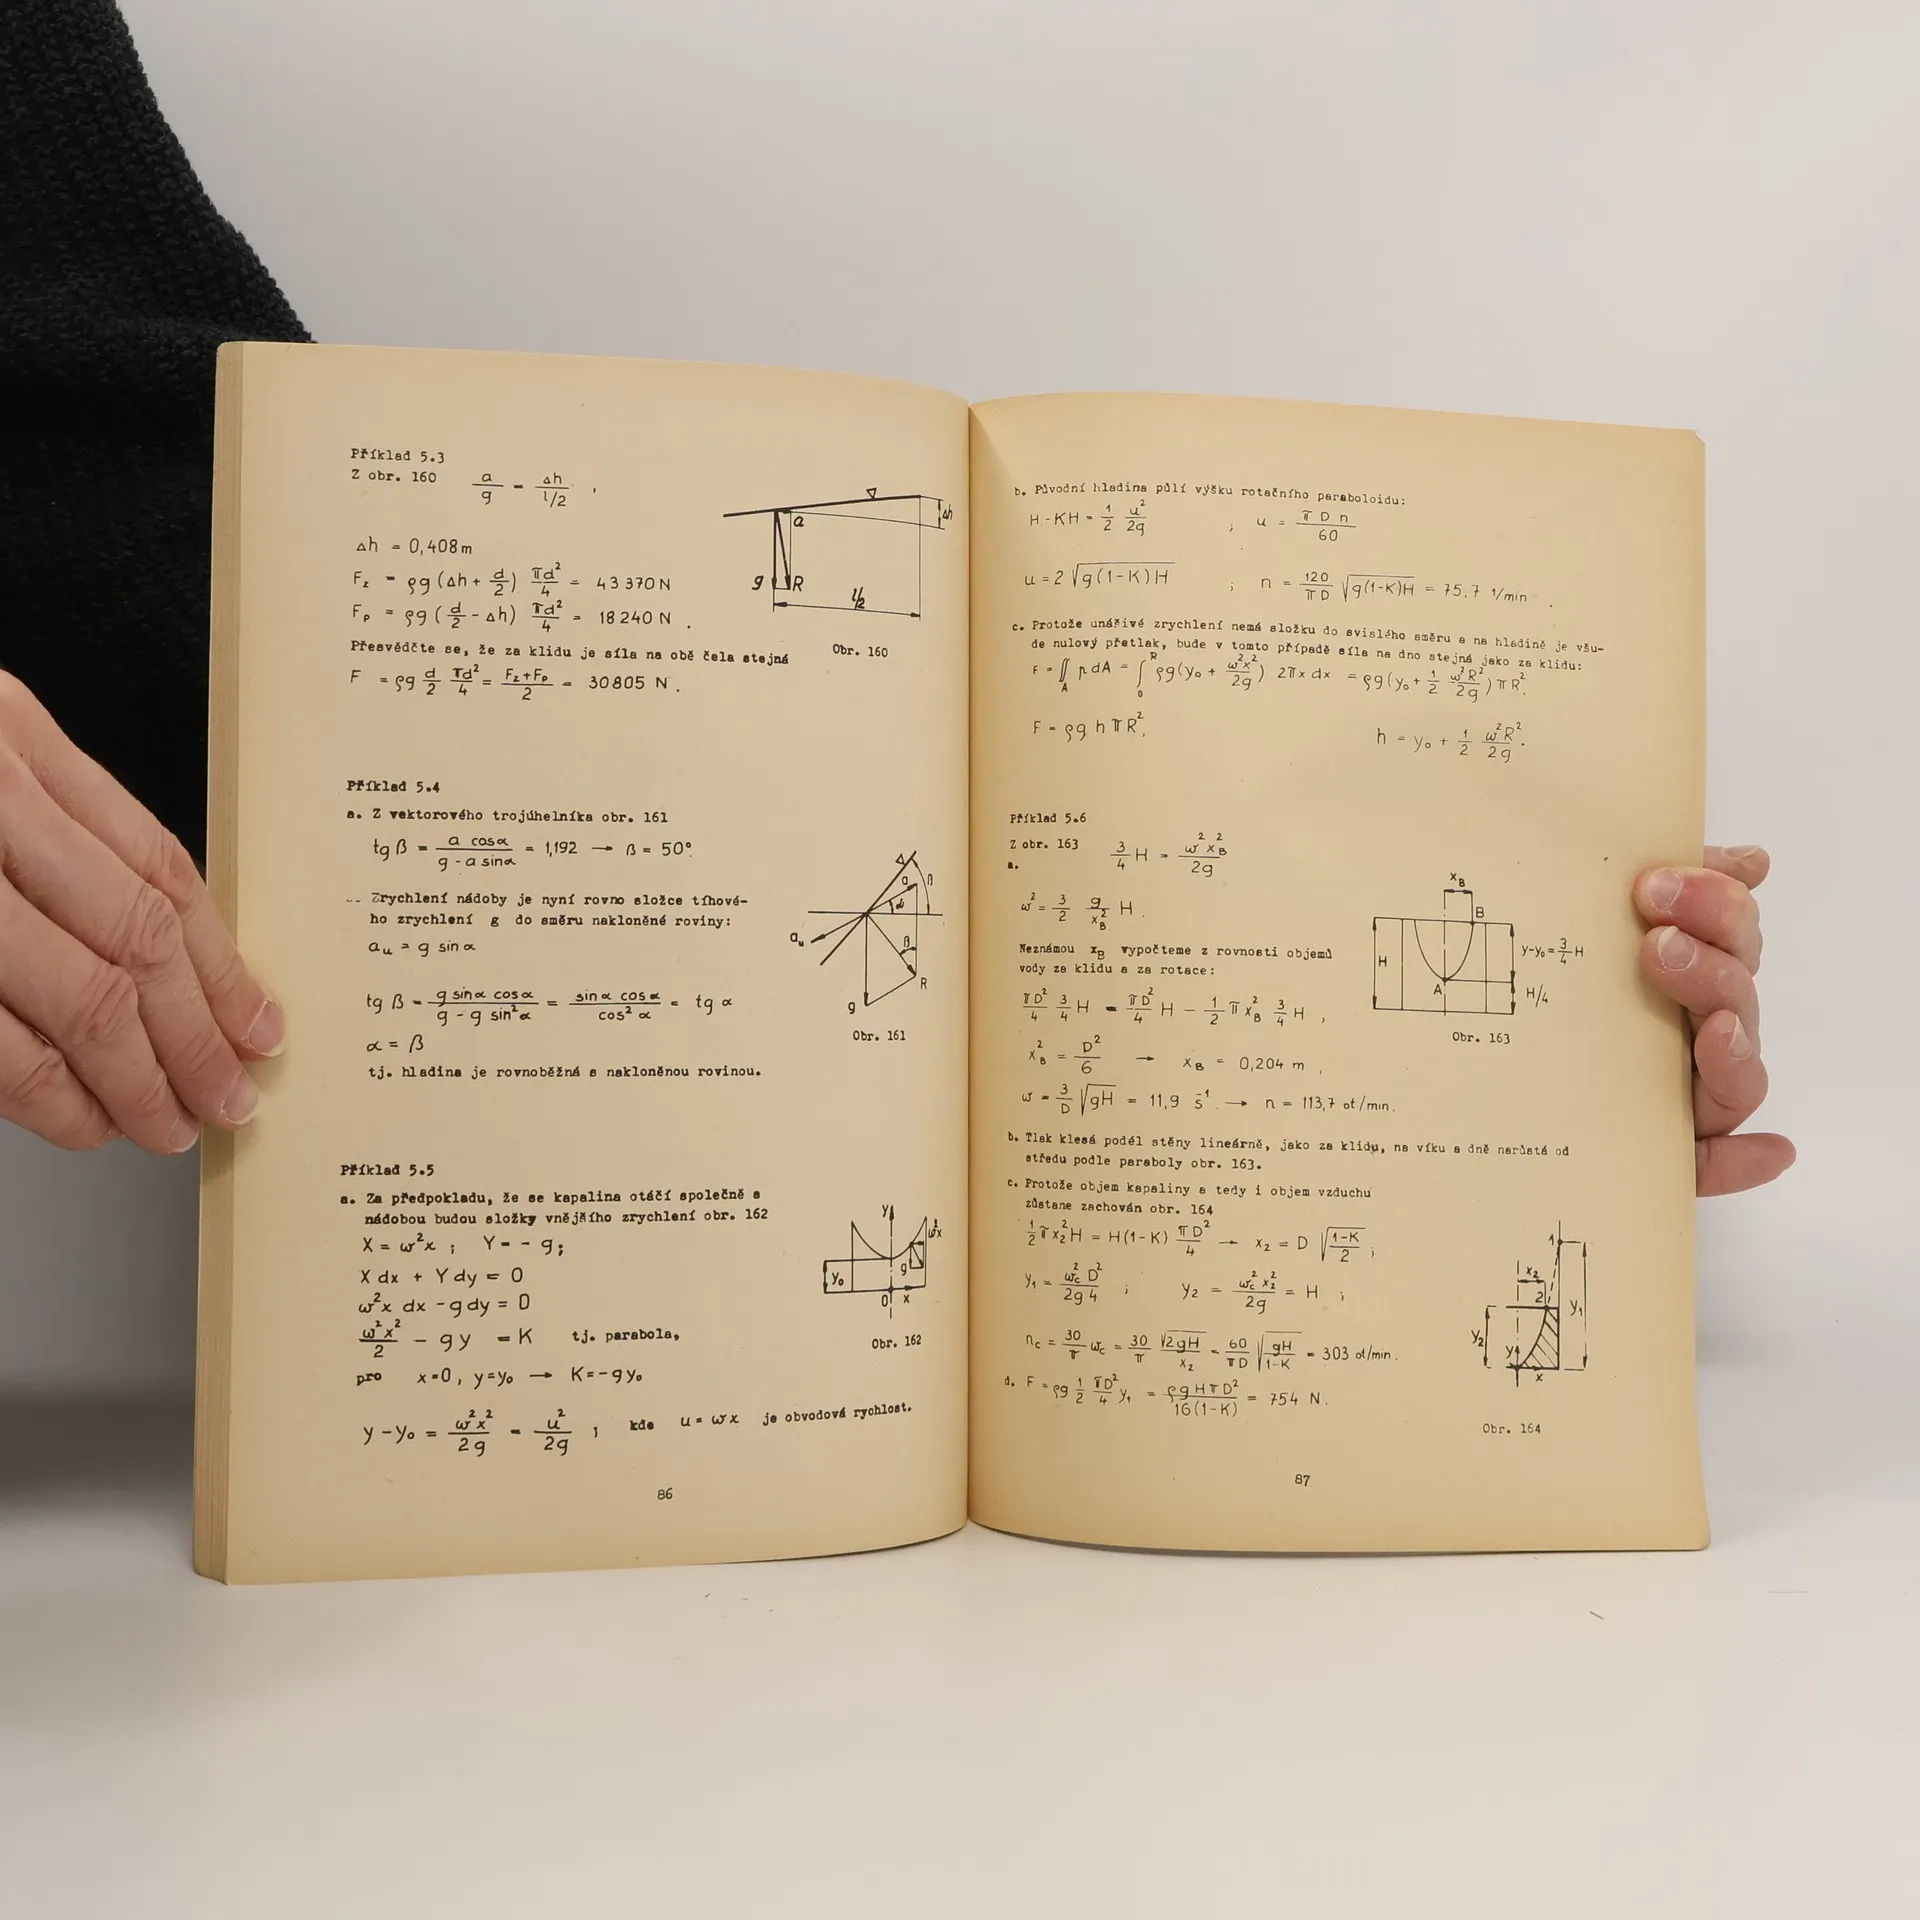 Příklad 5.3
Z obr. 160   a/g = Δh/(l/2) ,
Δh = 0,408 m
F_z = ρg (Δh + d/2) πd²/4 = 43 370 N
F_p = ρg (d/2 - Δh) πd²/4 = 18 240 N .
Přesvědčte se, že za klidu je síla na obě čela stejná
F = ρg d/2 πd²/4 = (F_z+F_p)/2 = 30805 N .
a
Δh
g
R
l/2
Obr. 160
Příklad 5.4
a. Z vektorového trojúhelníka obr. 161
tg β = (a cosα)/(g - a sinα) = 1,192 → β = 50°
Zrychlení nádoby je nyní rovno složce tíhové-
ho zrychlení g do směru nakloněné roviny:
a_u = g sin α
tg β = (g sinα cosα)/(g - g sin²α) = (sin α cos α)/(cos² α) = tg α
α = β
tj. hladina je rovnoběžná s nakloněnou rovinou.
a
β
α
a_u
β
R
g
Obr. 161
Příklad 5.5
a. Za předpokladu, že se kapalina otáčí společně s
nádobou budou složky vnějšího zrychlení obr. 162
X = ω²x ; Y = - g;
X dx + Y dy = 0
ω²x dx - g dy = 0
ω²x²/2 - gy = K   tj. parabola,
pro x=0, y=y₀ → K=-gy₀
y - y₀ = ω²x²/2g = u²/2g ; kde u = ωx je obvodová rychlost.
y
ω²x
g
y₀
0
x
Obr. 162
86
b. Původní hladina půlí výšku rotačního paraboloidu:
H - KH = 1/2 u²/2g ; u = π D n/60
u = 2 √(g(1-K)H) ; n = 120/πD √(g(1-K)H) = 75,7 1/min .
c. Protože unášivé zrychlení nemá složku do svislého směru a na hladině je všu-
de nulový přetlak, bude v tomto případě síla na dno stejná jako za klidu:
F = ∬_A p dA = ∫₀^R ρg(y₀ + ω²x²/2g) 2πx dx = ρg(y₀ + 1/2 ω²R²/2g) πR²,
F = ρg h πR²,   h = y₀ + 1/2 ω²R²/2g.
Příklad 5.6
Z obr. 163   3/4 H = ω²x_B²/2g
a.
ω² = 3/2 g/x_B² H .
Neznámou x_B vypočteme z rovnosti objemů
vody za klidu a za rotace:
πD²/4 3/4 H = πD²/4 H - 1/2 π x_B² 3/4 H ,
x_B² = D²/6 → x_B = 0,204 m ,
ω = 3/D √(gH) = 11,9 s⁻¹ . → n = 113,7 ot/min.
x_B
B
H
y-y₀ = 3/4 H
A
H/4
Obr. 163
b. Tlak klesá podél stěny lineárně, jako za klidu, na víku a dně narůstá od
středu podle paraboly obr. 163.
c. Protože objem kapaliny a tedy i objem vzduchu
zůstane zachován obr. 164
1/2 π x₂² H = H(1-K) πD²/4 → x₂ = D √((1-K)/2) ;
y₁ = ω_c² D²/2g 4 ; y₂ = ω_c² x₂²/2g = H ;
n_c = 30/π ω_c = 30/π √(2gH)/x₂ = 60/πD √(gH/(1-K)) = 303 ot/min.
d. F = ρg 1/2 πD²/4 y₁ = ρgHπD²/16(1-K) = 754 N .
1
x₂
2
y₁
y₂
y
x
Obr. 164
87